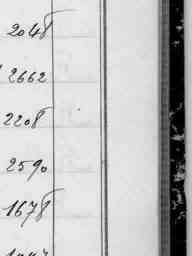 2048
2662
2208
2590
1678